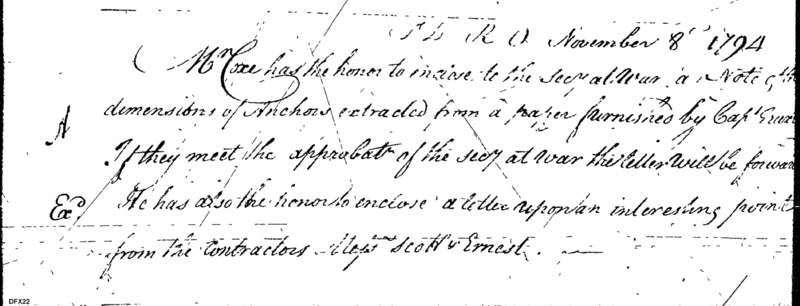 T D R O November 8th 1794
Mr Coxe has the honor to inclose to the Secy at War a Note of the
dimensions of Anchors extracted from a paper furnished by Capt Truxt
A
If they meet the approbatn of the Secy at War the letter will be forwar
Exd. He has also the honor to enclose a letter upon an interesting point
from the Contractors Messrs Scott & Ernest. —
DFX22